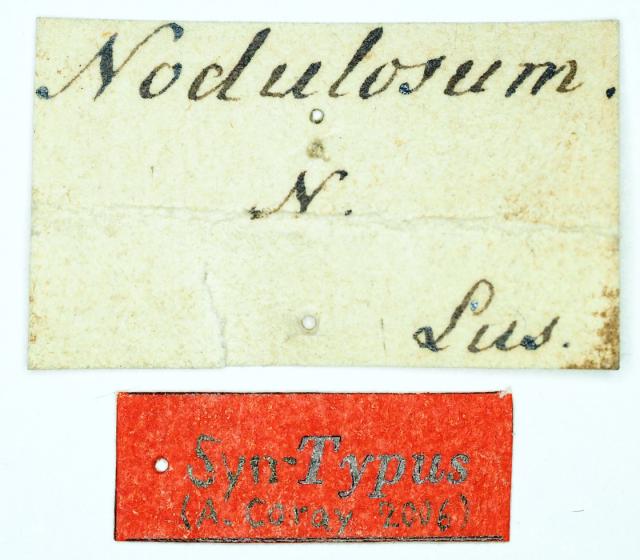 Nodulosum.
N.
Lus.
Syn-Typus
(A. Coray 2006)